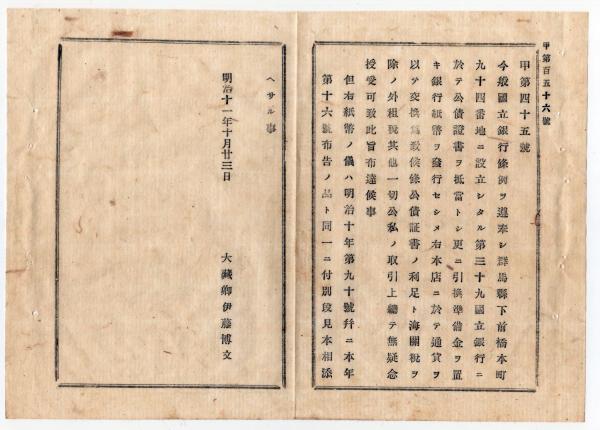 甲第百五十六號
甲第四十五號
今般國立銀行條例ヲ遵奉シ群馬縣下前橋本町
九十四番地ニ設立シタル第三十九國立銀行ニ
於テ公債證書ヲ抵當トシ更ニ引換準備金ヲ置
キ銀行紙幣ヲ發行セシメ右本店ニ於テ通貨ヲ
以テ交換爲致候條公債証書ノ利足ト海關税ヲ
除ノ外租税其他一切公私ノ取引上總テ無疑念
授受可致此旨布達候事
但右紙幣ノ儀ハ明治十年第九十號幷ニ本年
第十六號布告ノ品ト同一ニ付別段見本相添
ヘサル事
明治十一年十月廿三日
大藏卿伊藤博文